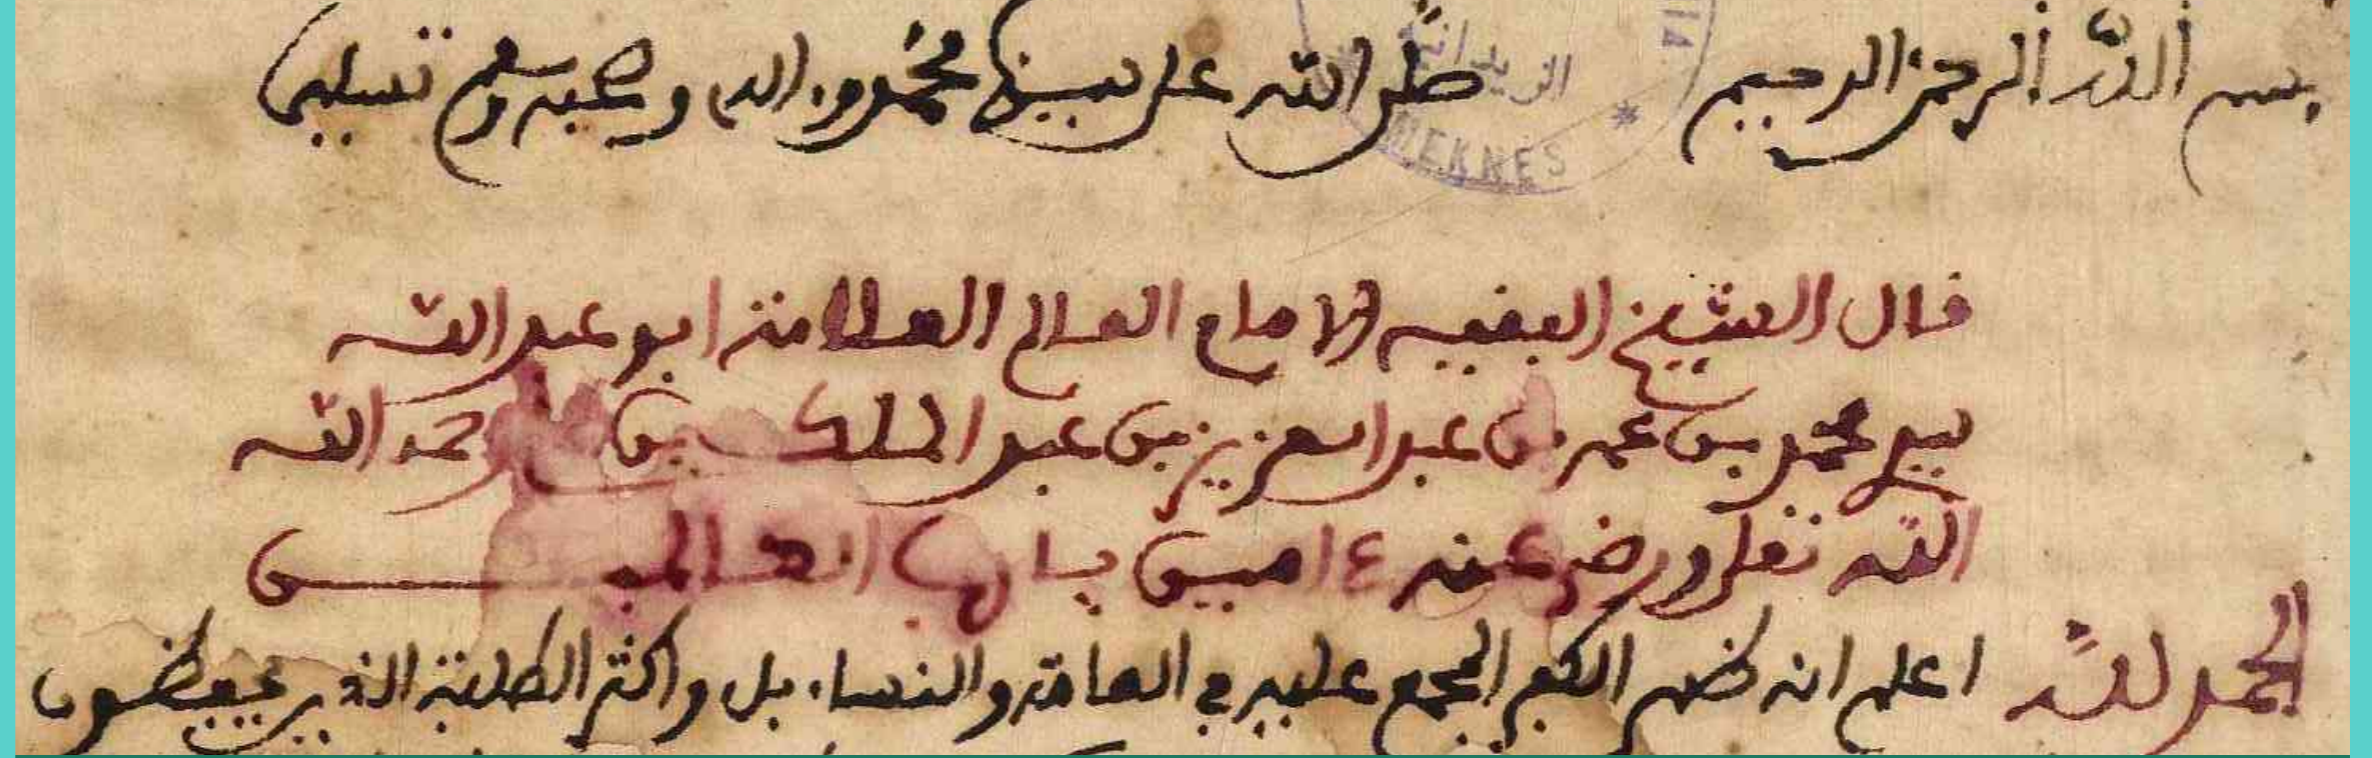 بسم الله الرحمن الرحيم صلى الله على نبينا محمد وءاله وصحبه وسلم تسليما
الزيدانية
MEKNES
قال الشيخ الفقيه الامام العالم العلامة ابو عبد الله
سيد محمد بن عمر بن عبد العزيز بن عبد الملك بن رحمه الله
الله تعلى ورضي عنه ءامين يا رب العالمين
الحمد لله اعلم انه ظهر الكفر المجمع عليه في العامة والنساء بل واكثر الطلبة الذين يحفظون